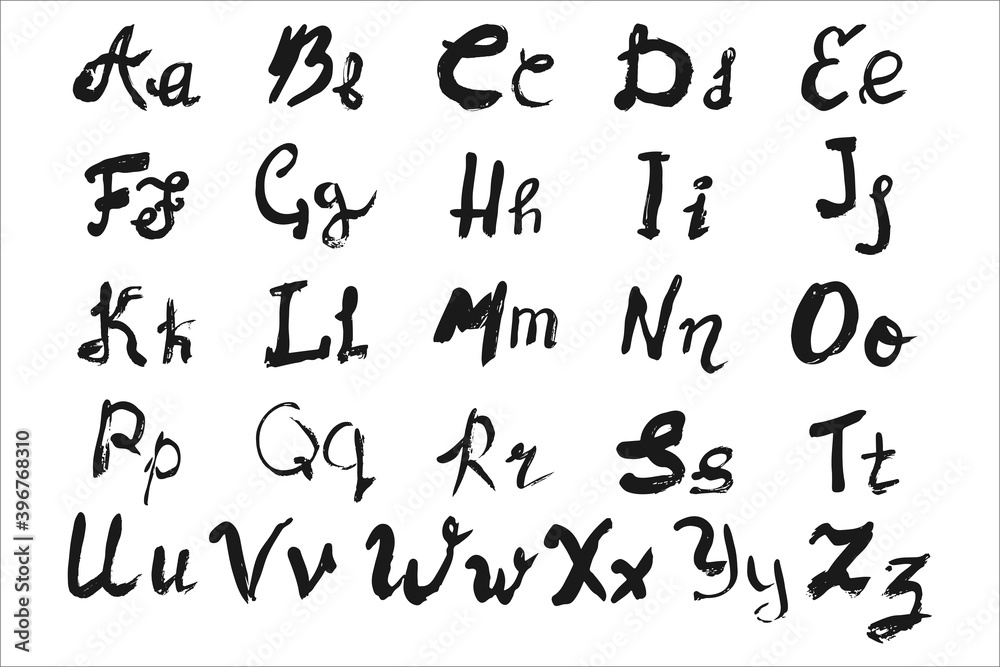 Aa Bb Cc Dd Ee
Ff Gg Hh Ii Jj
Kk Ll Mm Nn Oo
Pp Qq Rr Ss Tt
Uu Vv Ww Xx Yy Zz
Adobe Stock | #396768310